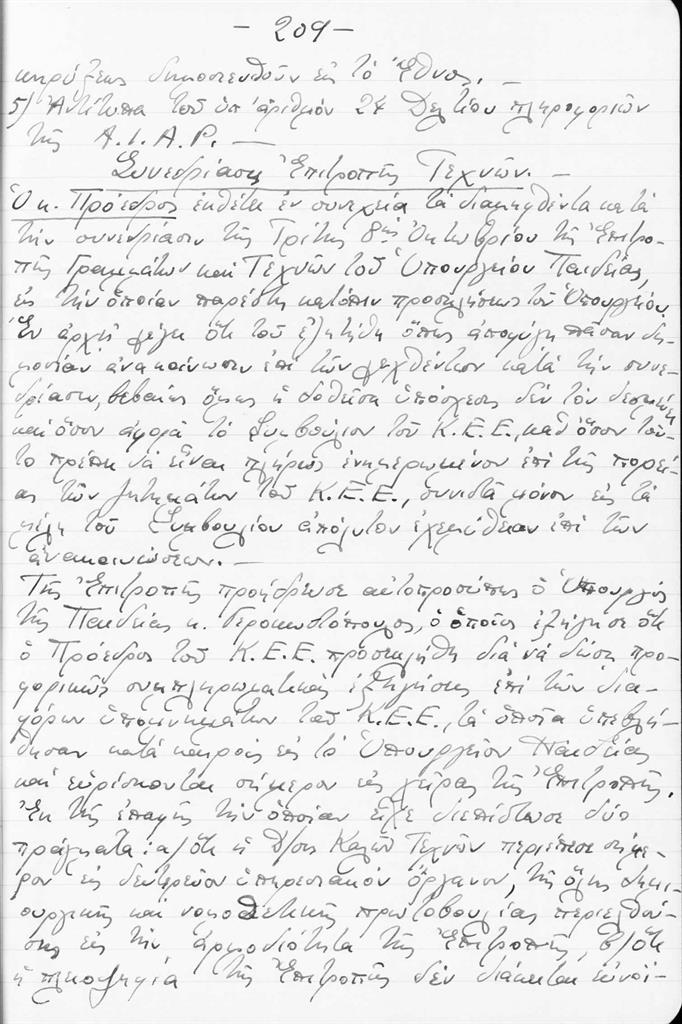 - 209 -
κηρύξεως δημοσιευθοῦν εἰς τό Ἔθνος. -
5) Ἀντίτυπα τοῦ ὑπ' ἀριθμόν 24 Δελτίου πληροφοριῶν
τῆς A.I.A.P. -
Συνεδρίασις Ἐπιτροπῆς Τεχνῶν. -
Ὁ κ. Πρόεδρος ἐκθέτει ἐν συνεχείᾳ τά διαμειφθέντα κατά
τήν συνεδρίασιν τῆς Τρίτης 8ης Ὀκτωβρίου τῆς Ἐπιτρο-
πῆς Γραμμάτων καί Τεχνῶν τοῦ Ὑπουργείου Παιδείας,
εἰς τήν ὁποίαν παρέστη κατόπιν προσκλήσεως τοῦ Ὑπουργείου.
Ἐν ἀρχῇ λέγει ὅτι τοῦ ἐζητήθη ὅπως ἀποφύγῃ πᾶσαν δη-
μοσίαν ἀνακοίνωσιν ἐπί τῶν λεχθέντων κατά τήν συνε-
δρίασιν, βεβαίως ὅμως ἡ δοθεῖσα ὑπόσχεσις δέν τόν δεσμεύει
καί ὅσον ἀφορᾶ τό Συμβούλιον τοῦ Κ.Ε.Ε., καθ' ὅσον τοῦ-
το πρέπει νά εἶναι πλήρως ἐνημερωμένον ἐπί τῆς πορεί-
ας τῶν ζητημάτων τοῦ Κ.Ε.Ε., συνιστᾶ μόνον εἰς τά
μέλη τοῦ Συμβουλίου ἀπόλυτον ἐχεμύθειαν ἐπί τῶν
ἀνακοινώσεων. -
Τῆς Ἐπιτροπῆς προήδρευσε αὐτοπροσώπως ὁ Ὑπουργός
τῆς Παιδείας κ. Γεροκωστόπουλος, ὁ ὁποῖος ἐξήγησε ὅτι
ὁ Πρόεδρος τοῦ Κ.Ε.Ε. προσεκλήθη διά νά δώσῃ προ-
φορικῶς συμπληρωματικάς ἐξηγήσεις ἐπί τῶν δια-
φόρων ὑπομνημάτων τοῦ Κ.Ε.Ε., τά ὁποῖα ὑπεβλή-
θησαν κατά καιρούς εἰς τό Ὑπουργεῖον Παιδείας
καί εὑρίσκονται σήμερον εἰς χεῖρας τῆς Ἐπιτροπῆς.
Ἐκ τῆς ἐπαφῆς τήν ὁποίαν εἶχε διεπίστωσε δύο
πράγματα: α/ ὅτι ἡ Δ/σις Καλῶν Τεχνῶν περιέπεσε σήμε-
ρον εἰς δευτερεῦον ὑπηρεσιακόν ὄργανον, τῆς ὅλης δημι-
ουργικῆς καί νομοθετικῆς πρωτοβουλίας περιελθού-
σης εἰς τήν ἁρμοδιότητα τῆς Ἐπιτροπῆς, β/ ὅτι
ἡ πλειοψηφία τῆς Ἐπιτροπῆς δέν διάκειται εὐνοϊ-